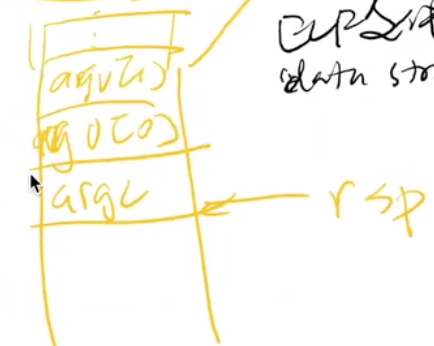 argv[1]
argv[0]
argc
rsp
data str